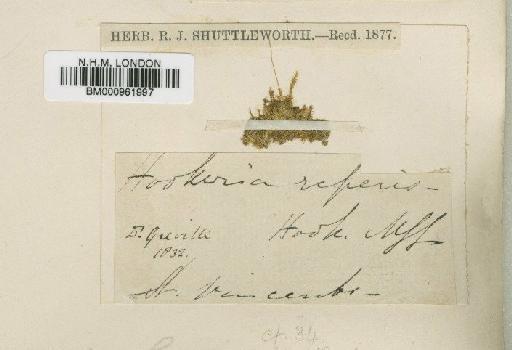 HERB. R. J. SHUTTLEWORTH.—Recd. 1877.
N.H.M. LONDON
BM000961997
Hookeria
Hook. Mss
Dr. Greville
1832.
St. Vincents
cf. 34